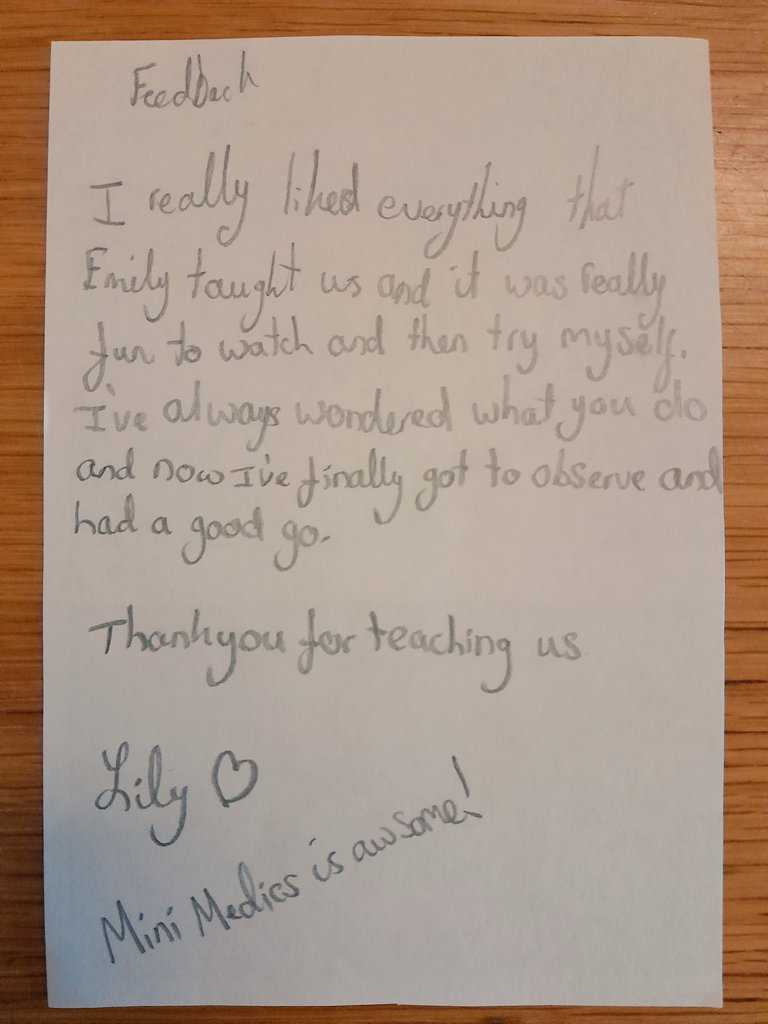 Feedback
I really liked everything that
Emily taught us and it was really
fun to watch and then try myself.
I've always wondered what you do
and now I've finally got to observe and
had a good go.
Thankyou for teaching us
Lily ♡
Mini Medics is awsome!